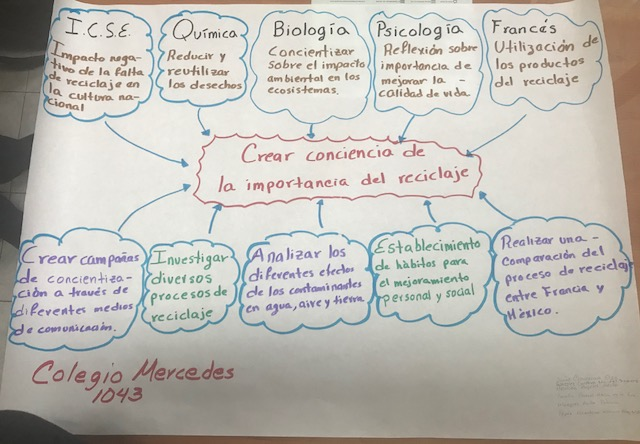 I.C.S.E.
Impacto nega-
tivo de la falta
de reciclaje en
la cultura na-
cional
Química
Reducir y
reutilizar
los desechos
Biología
Concientizar
sobre el impacto
ambiental en los
ecosistemas.
Psicología
Reflexión sobre
importancia de
mejorar la -
calidad de vida.
Francés
Utilización de
los productos
del reciclaje
Crear conciencia de
la importancia del reciclaje
Crear campañas
de concientiza-
ción a través de
diferentes medios
de comunicación.
Investigar
diversos
procesos de
reciclaje
Analizar los
diferentes efectos
de los contaminantes
en agua, aire y tierra.
Establecimiento
de hábitos para
el mejoramiento
personal y social
Realizar una -
comparación del
proceso de reciclaje
entre Francia y
México.
Colegio Mercedes
1043